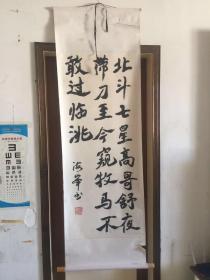 北斗七星高哥舒夜
带刀至今窥牧马不
敢过临洮
海
书